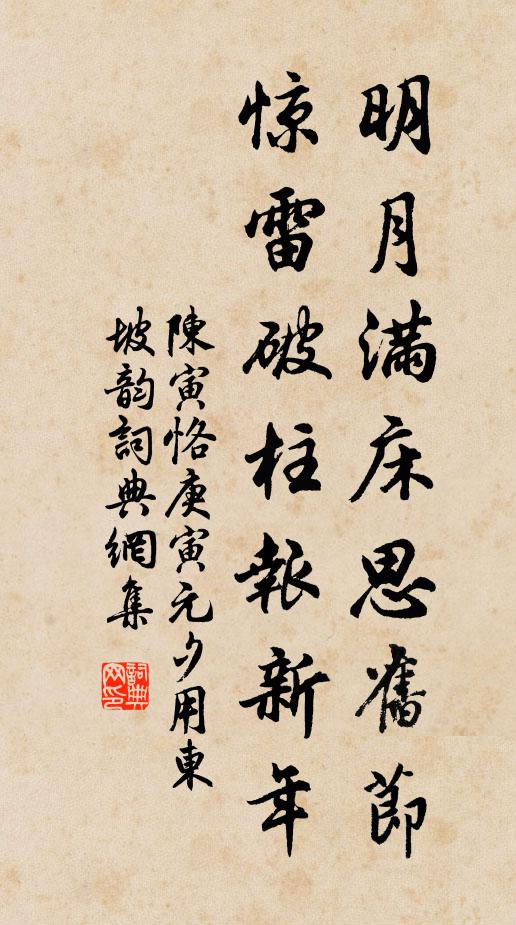 明月满床思舊節
惊雷破柱報新年
陳寅恪庚寅元夕用東
坡韵詞典網集
詞典网印